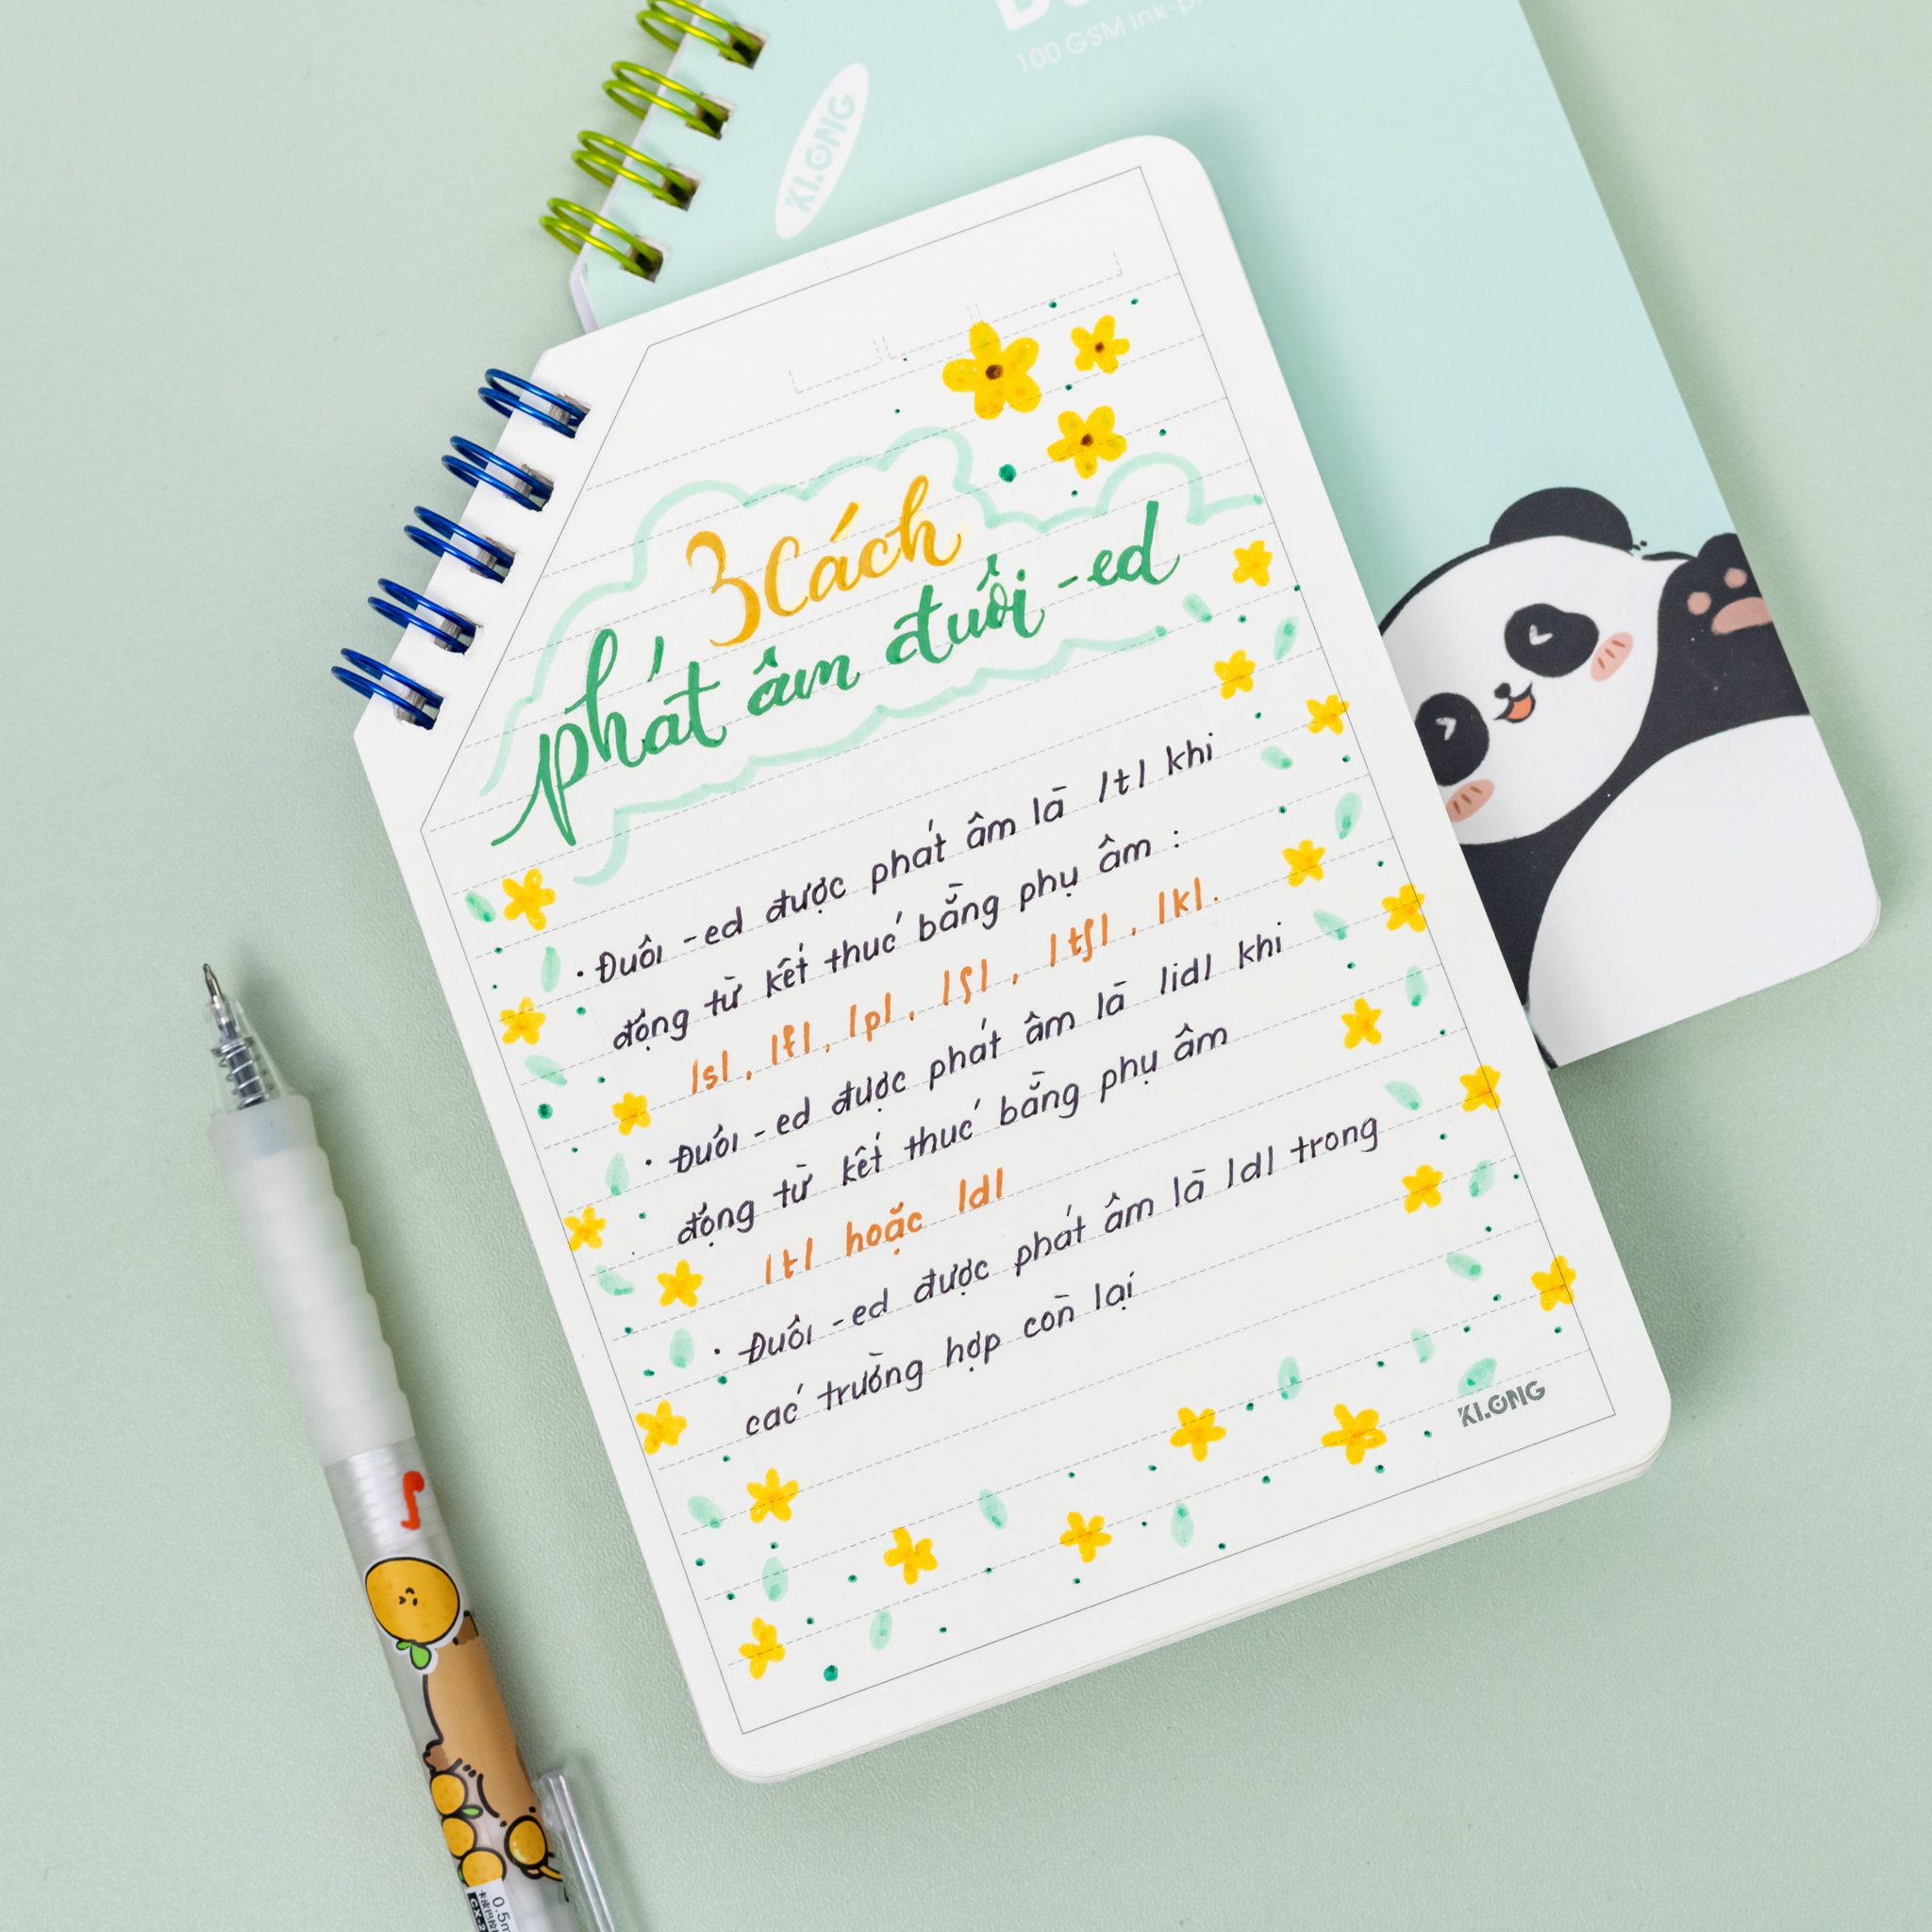 100 GSM ink-p
KLONG
3 Cách
phát âm đuôi -ed
• Đuôi -ed được phát âm là /t/ khi
động từ kết thúc bằng phụ âm :
/s/, /f/, /p/, /ʃ/, /tʃ/, /k/.
• Đuôi -ed được phát âm là /id/ khi
động từ kết thúc bằng phụ âm
/t/ hoặc /d/
• Đuôi -ed được phát âm là /d/ trong
các trường hợp còn lại
KLONG
0.5m